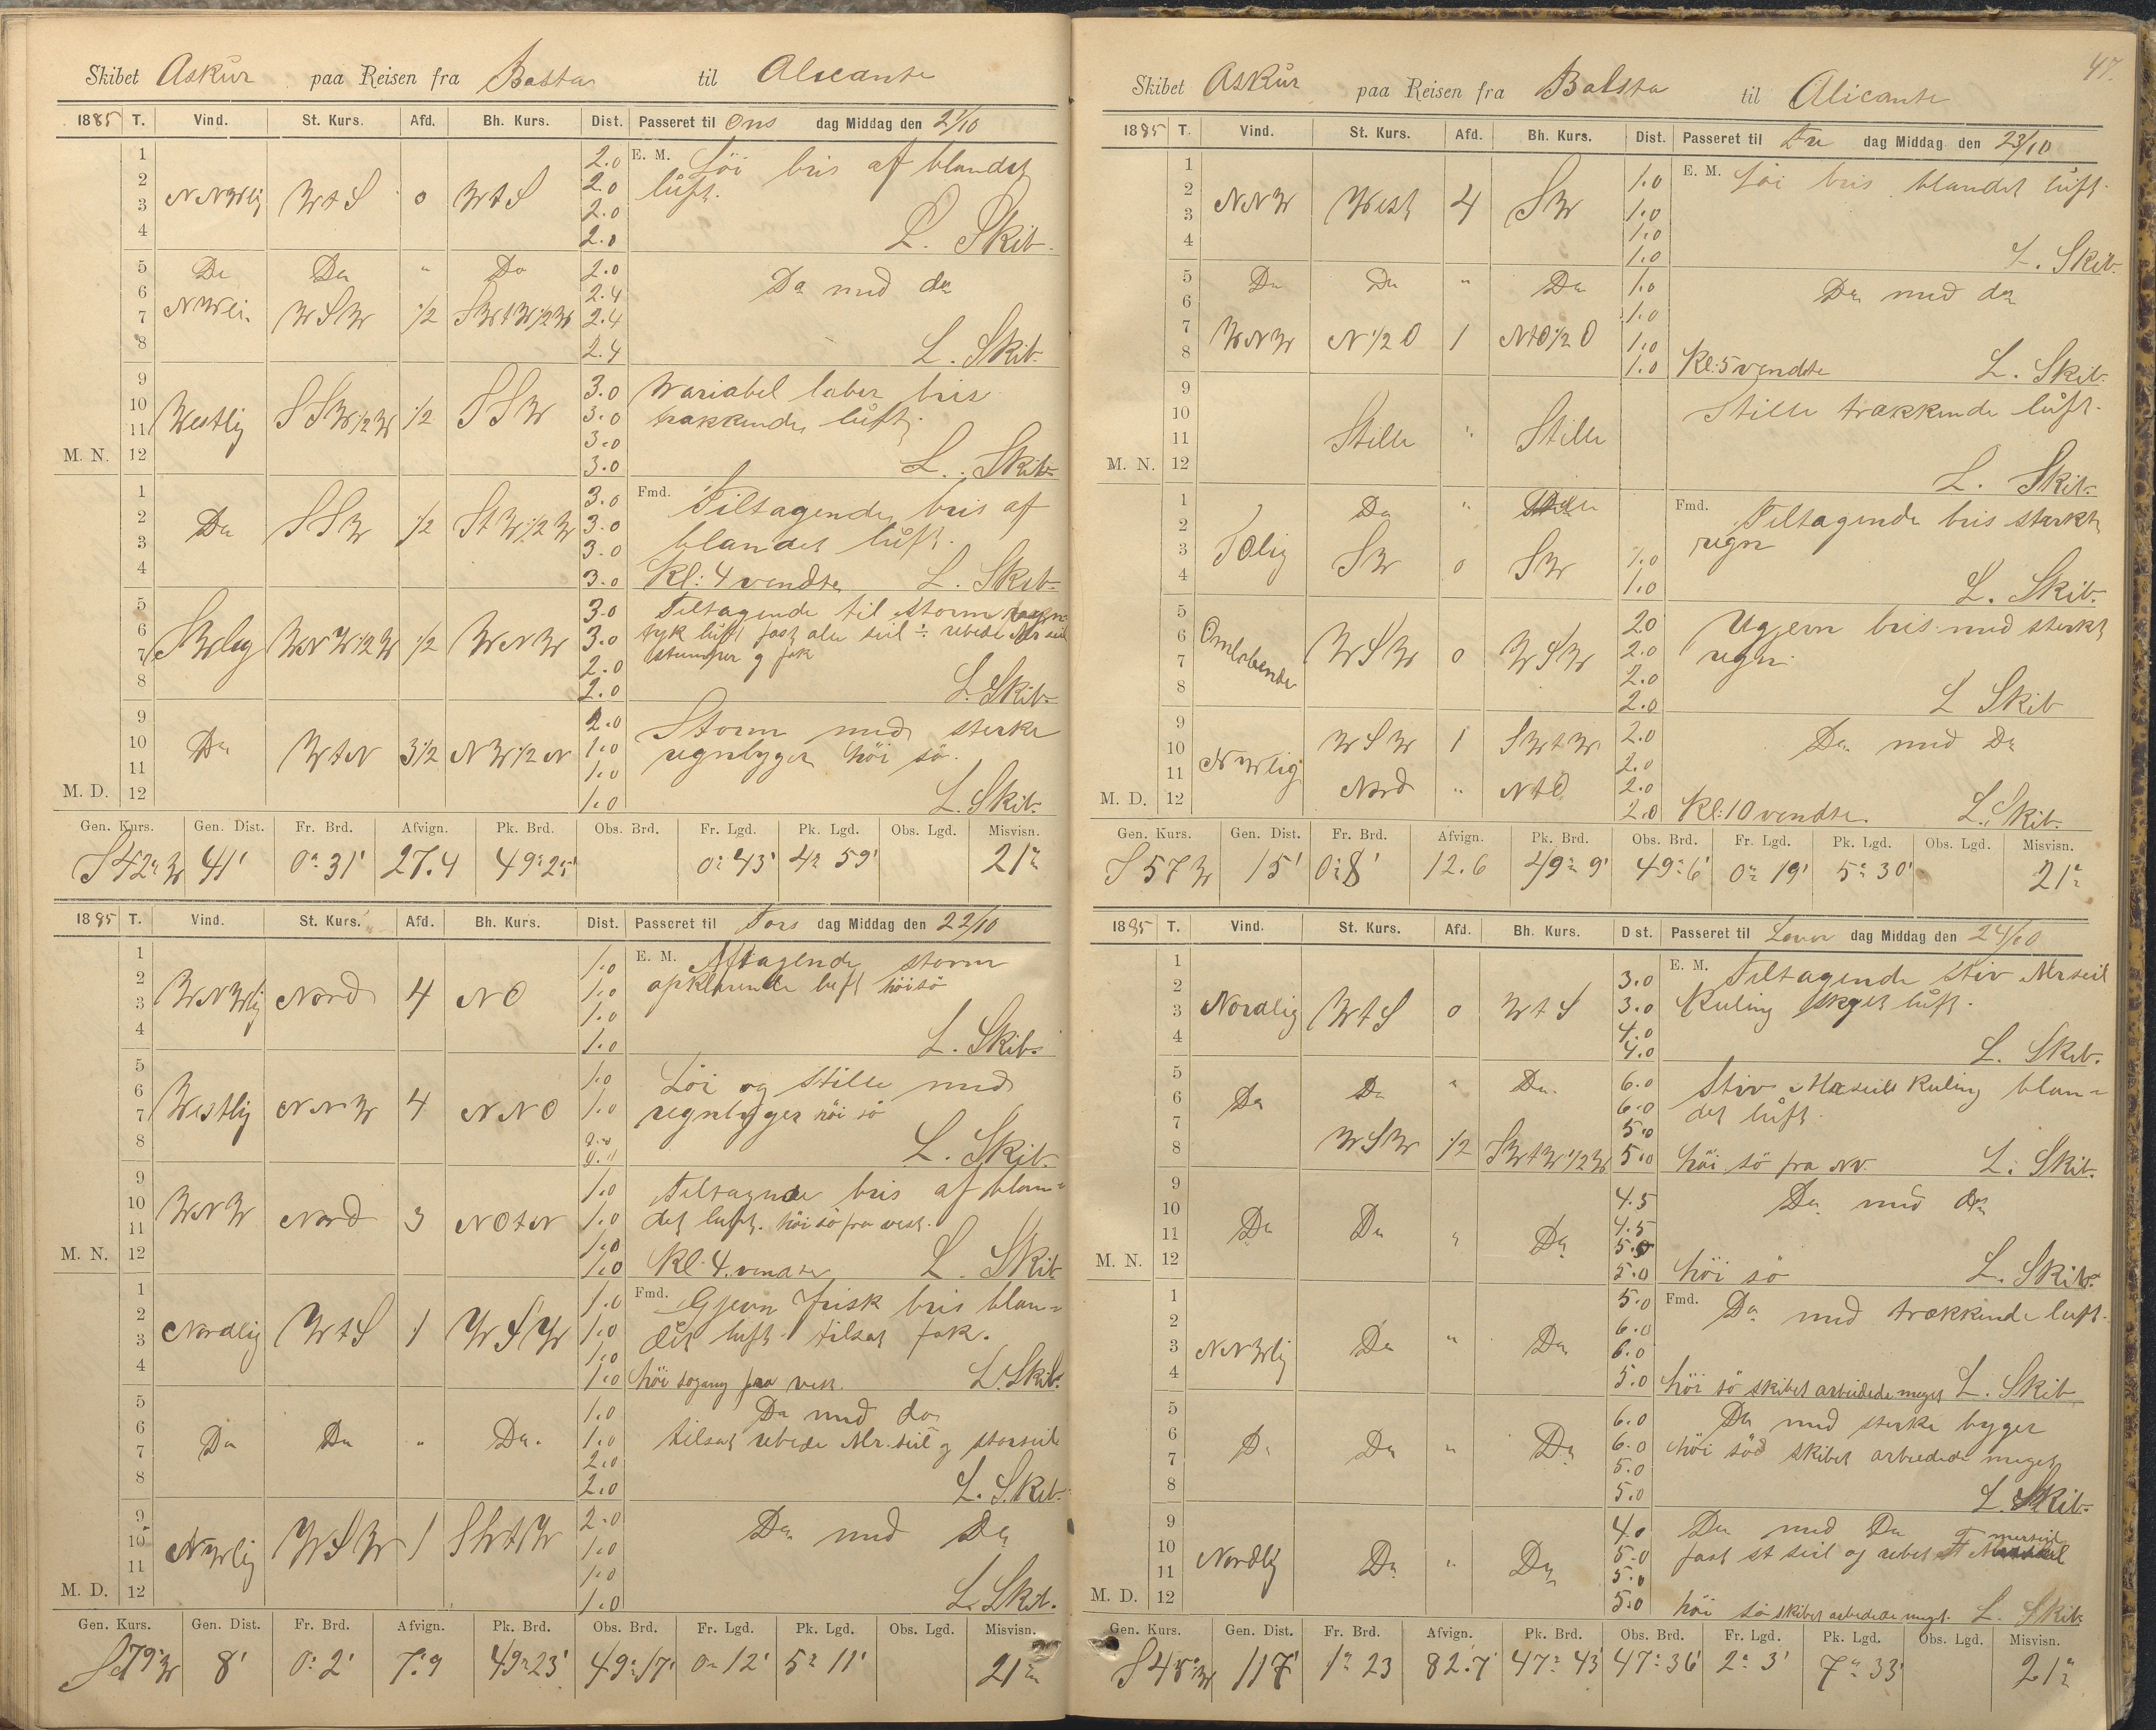 Skibet Askür paa Reisen fra Basta til Alicante
1885 T. Vind. St. Kurs. Afd. Bh. Kurs. Dist. Passeret til Ons dag Middag den 21/10
1 2.0 E. M. Löi bris af blandet
2 NNWlig WtS 0 WtS 2.0 lüft.
3 2.0
4 2.0 L. Skib.
5 Do Do " Do 2.0
6 NWli. WSW 1/2 SWtW1/2W 2.4 Do med do
7 2.4
8 2.4 L. Skib.
9 3.0 Variabel laber bris
10 Westlig SSW1/2W 1/2 SSW 3.0 trækkende lüft
11 3.0
M. N. 12 3.0 L. Skib.
1 3.0 Fmd. Tiltagende bris af
2 Do SSW 1/2 StW1/2W 3.0 blandet lüft.
3 3.0
4 3.0 Kl: 4 vendte L. Skib.
5 3.0 Tiltagende til storm
6 SWlig WNW1/2W 1/2 WNW 3.0 tyk lüft fast alle seil ÷ rebede Mr seil
7 2.0 stumper g fok
8 2.0 L. Skib.
9 2.0 Storm med sterke
10 Do WtN 3 1/2 NW1/2N 1.0 regnbyger höi sö.
11 1.0
M. D. 12 1.0 L. Skib.
Gen. Kurs. Gen. Dist. Fr. Brd. Afvign. Pk. Brd. Obs. Brd. Fr. Lgd. Pk. Lgd. Obs. Lgd. Misvisn.
S42°W 41' 0° 31' 27.4 49° 25' 0° 43' 4° 59' 21°
1885 T. Vind. St. Kurs. Afd. Bh. Kurs. Dist. Passeret til Tors dag Middag den 22/10
1 1.0 E. M. Aftagende storm
2 WNWlig Nord 4 NO 1.0 opklarende luft höi sö
3 1.0
4 1.0 L. Skib.
5 1.0 Löi og stille med
6 Westlig NNW 4 NNO 1.0 regnbyger höi sö
7 0.0
8 0.0 L. Skib.
9 1.0 Tiltagende bris af blan=
10 WNW Nord 3 NOtN 1.0 det luft. höi sö fra vest.
11 1.0
M. N. 12 1.0 Kl: 4. vendte L. Skib
1 1.0 Fmd. Gjevn frisk bris blan=
2 Nordlig WtS 1 WSW 1.0 det luft. tilsat fok.
3 1.0
4 1.0 höi sögang fra vest. L. Skib.
5 1.0 Do med do
6 Do Do " Do. 1.0 tilsat rebede Mr. seil g storseil
7 2.0
8 2.0 L. Skib.
9 2.0
10 NWlig WSW 1 SWtW 1.0 Do med Do
11 1.0
M. D. 12 1.0 L. Skib.
Gen. Kurs. Gen. Dist. Fr. Brd. Afvign. Pk. Brd. Obs. Brd. Fr. Lgd. Pk. Lgd. Obs. Lgd. Misvisn.
S79°W 8' 0° 2' 7.9 49° 23' 49° 17' 0° 12' 5° 11' 21°
47.
Skibet Askür paa Reisen fra Balsta til Alicante
1885 T. Vind. St. Kurs. Afd. Bh. Kurs. Dist. Passeret til Fre dag Middag den 23/10
1 1.0 E. M. Löi bris blandet lüft.
2 NNW West 4 SW 1.0
3 1.0
4 1.0 L. Skib.
5 Do Do " Do 1.0
6 1.0 Do med do
7 WNW N1/2O 1 NtO1/2O 1.0
8 1.0 Kl: 5 vendte L. Skib.
9 Stille trækkende lüft.
10
11 Stille " Stille
M. N. 12 L. Skib.
1 Do " Fmd. Tiltagende bris stærkt
2 regn
3 SW 0 SW 1.0
4 1.0 L. Skib.
5 2.0 Ugjevn bris med sterkt
6 Omlöbende WSW 0 WSW 2.0 regn.
7 2.0
8 2.0 L Skib
9 2.0
10 WSW 1 SWtW 2.0 Do med Do
11 NWlig 2.0
M. D. 12 Nord " NtO 2.0 Kl: 10 vendte. L. Skib.
Gen. Kurs. Gen. Dist. Fr. Brd. Afvign. Pk. Brd. Obs. Brd. Fr. Lgd. Pk. Lgd. Obs. Lgd. Misvisn.
S57W 15' 0° 8' 12.6 49° 9' 49° 6' 0° 19' 5° 30' 21°
1885 T. Vind. St. Kurs. Afd. Bh. Kurs. D st. Passeret til Löver dag Middag den 24/10
1 3.0 E. M. Tiltagende stiv Mrseil
2 3.0 Kuling skyet lüft.
3 Nordlig WtS 0 WtS 4.0
4 4.0 L. Skib.
5 6.0 Stiv Merseils Kuling blan=
6 Do Do " Do. 6.0 det lüft.
7 5.0
8 WSW 1/2 SWtW1/2W 5.0 höi sö fra NV. L. Skib.
9 4.5 Do med do
10 Do Do " Do 4.5
11 5.0
M. N. 12 5.0 höi sö L. Skib.
1 5.0 Fmd. Do med trækkende luft.
2 6.0
3 NNWlig Do " Do 6.0
4 5.0 höi sö skibet arbeidede meget L. Skib
5 6.0 Do med sterke byger
6 Do Do " Do 6.0 höi sö skibet arbeidede meget
7 5.0
8 5.0 L. Skib.
9 4.0 Do med Do
10 Nordlig Do " Do 5.0 fast st seil og rebet merseil
11 5.0
M. D. 12 5.0 höi sö skibet arbeidede meget. L. Skib.
Gen. Kurs. Gen. Dist. Fr. Brd. Afvign. Pk. Brd. Obs. Brd. Fr. Lgd. Pk. Lgd. Obs. Lgd. Misvisn.
S45°W 117' 1° 23 82.7 47° 43 47° 36' 2° 3' 7° 33' 21°